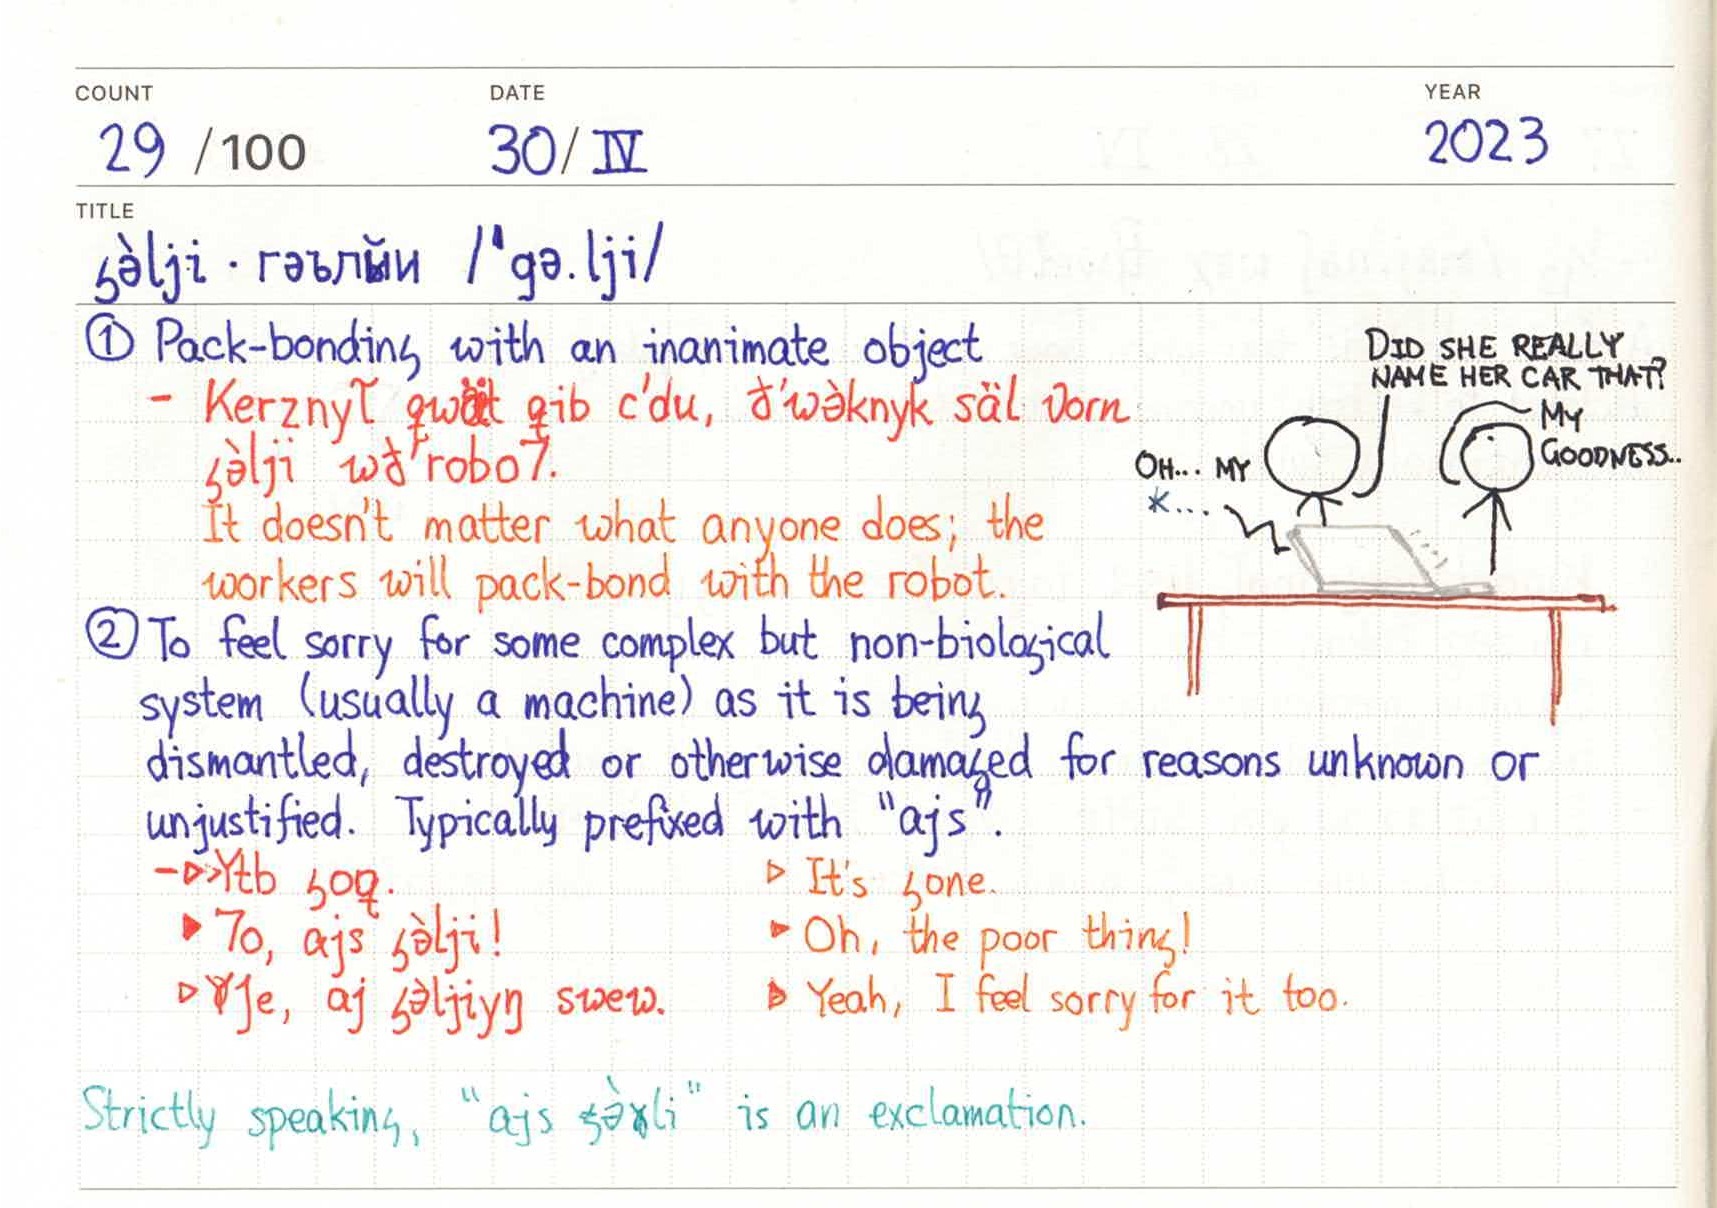 COUNT DATE YEAR
29 /100 30/IV 2023
TITLE
ꞔə̀lji · гәълйи /ˈgə.lji/
① Pack-bonding with an inanimate object
- qib c'du, säl
robo7.
It doesn't matter what anyone does; the
workers will pack-bond with the robot.
DID SHE REALLY
NAME HER CAR THAT?
MY
GOODNESS..
OH... MY
*...
② To feel sorry for some complex but non-biological
system (usually a machine) as it is being
dismantled, destroyed or otherwise damaged for reasons unknown or
unjustified. Typically prefixed with "ajs".
It's gone.
7o, ajs !
Oh, the poor thing!
aj swew.
Yeah, I feel sorry for it too.
Strictly speaking, "ajs " is an exclamation.